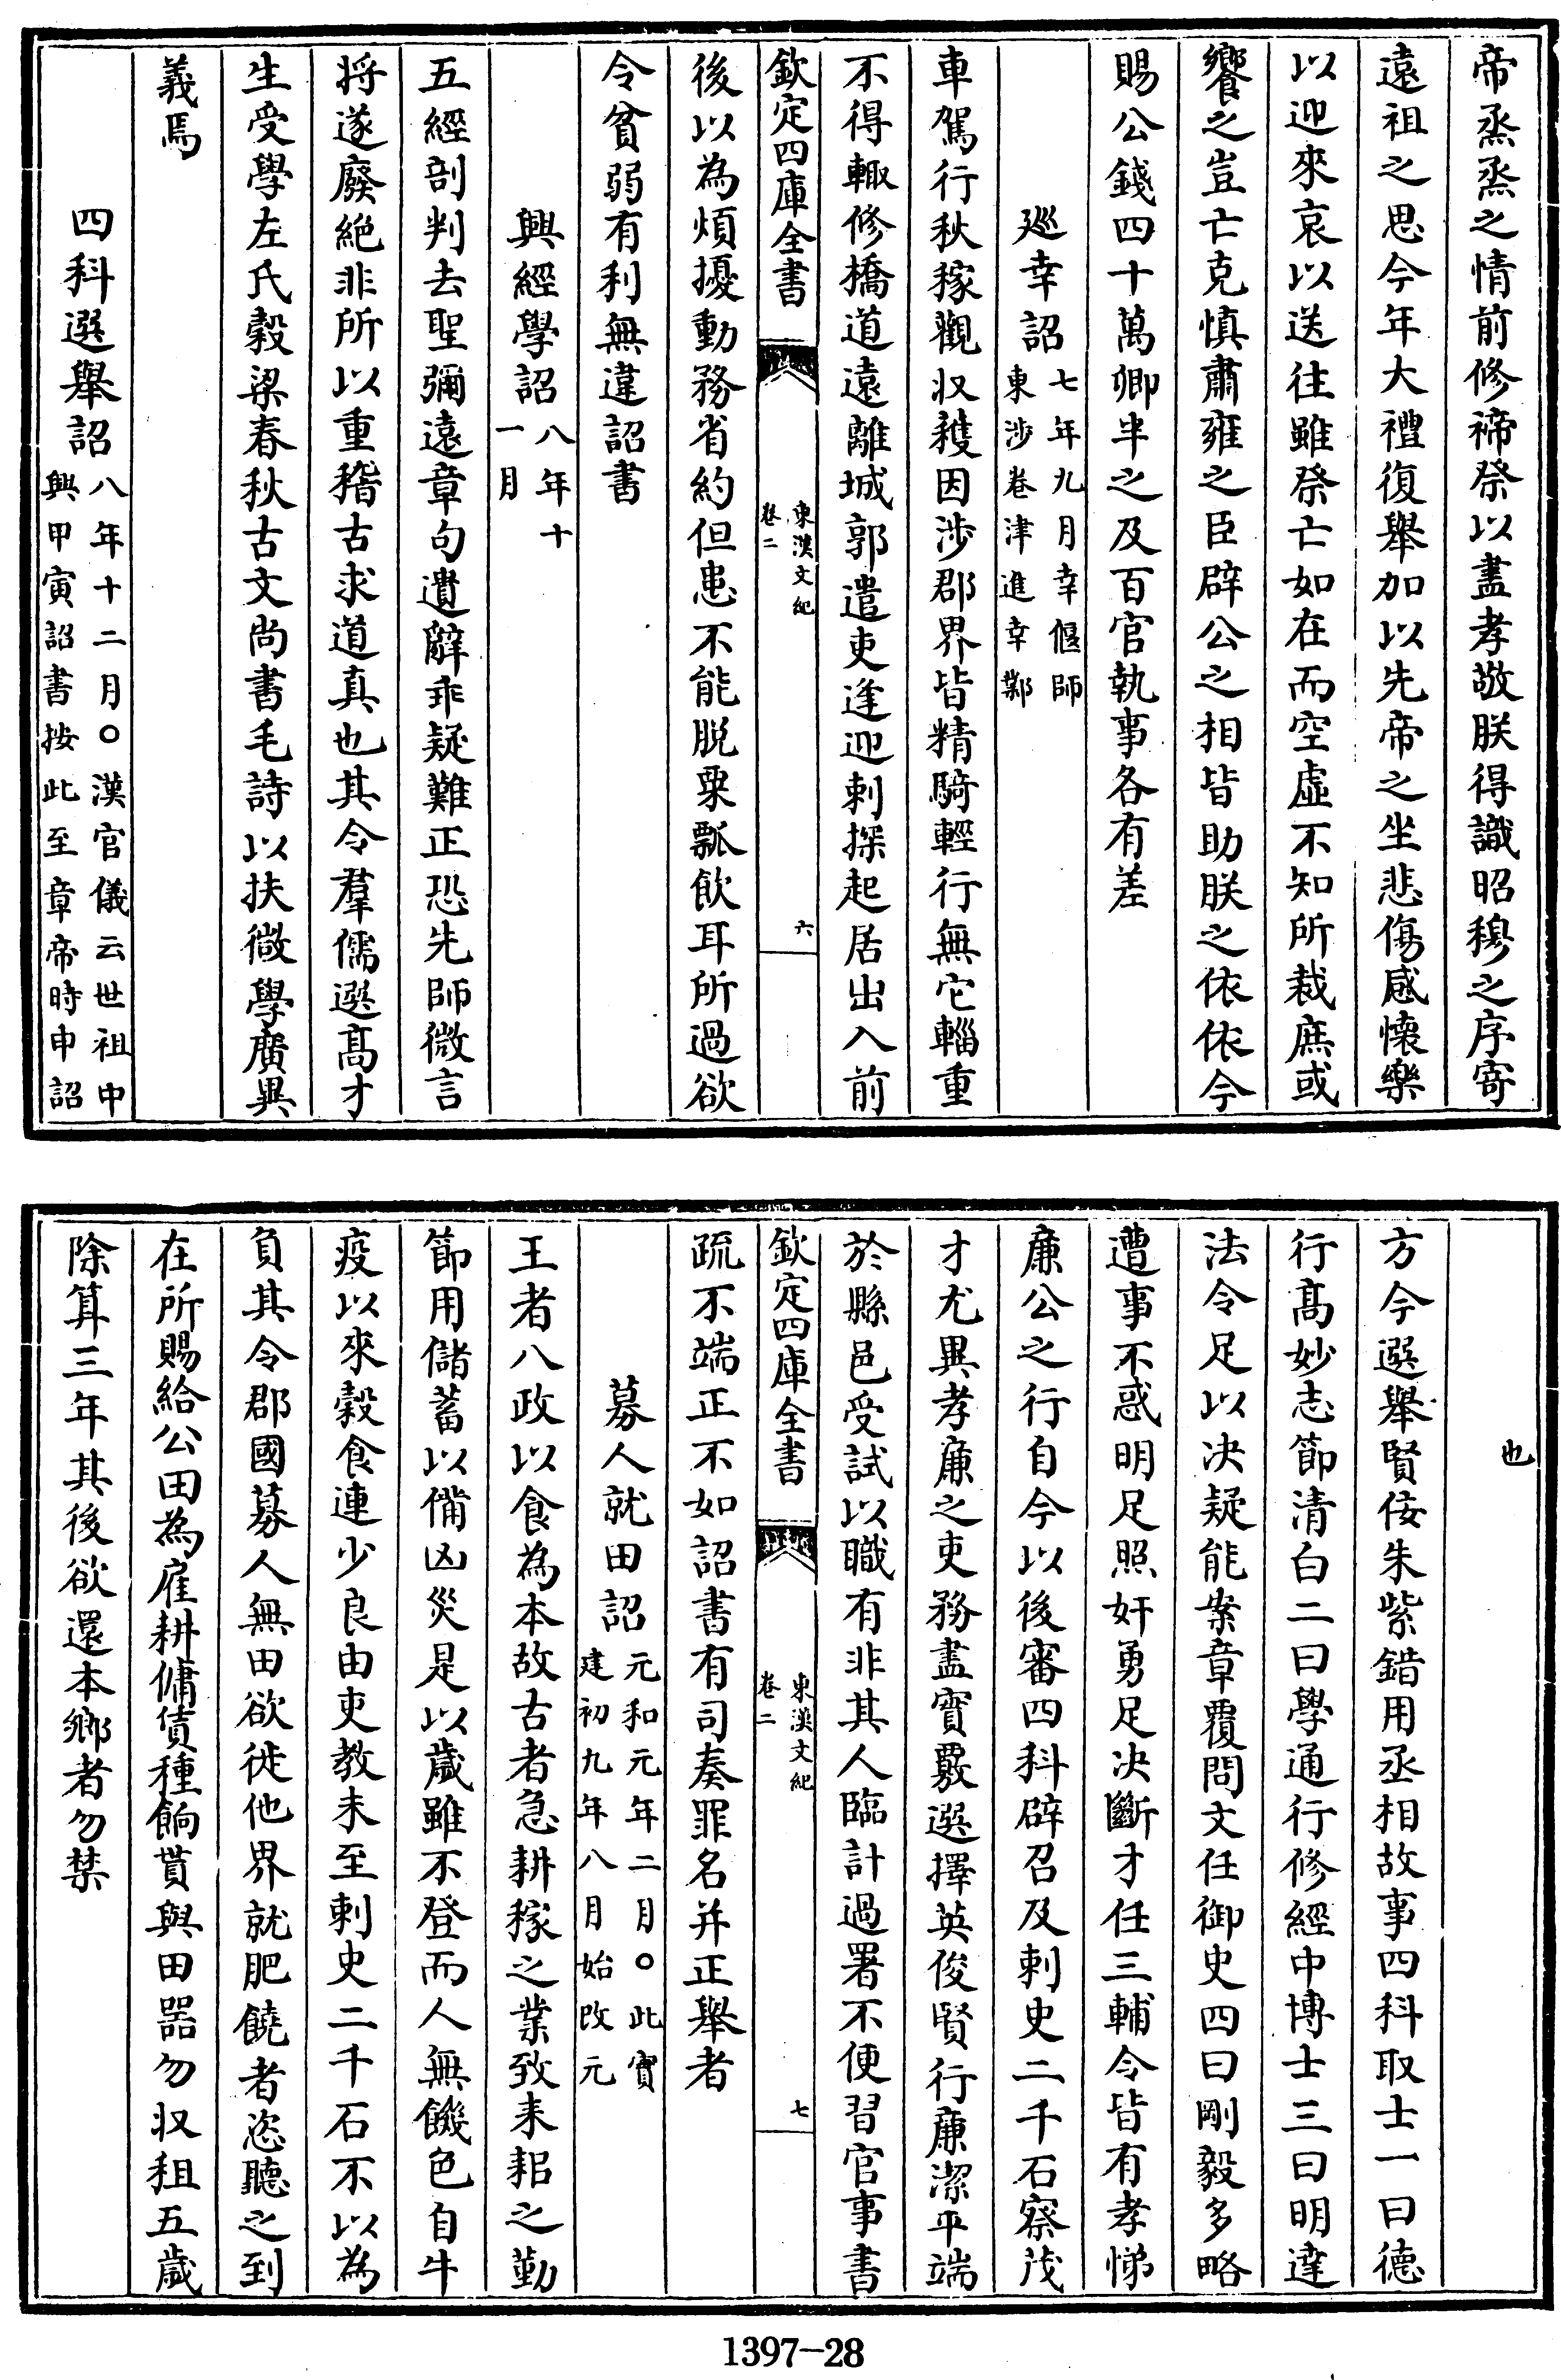 帝烝烝之情前修禘祭以盡孝敬朕得識昭穆之序寄
遠祖之思今年大禮復舉加以先帝之坐悲傷感懷樂
以迎來哀以送往雖祭亡如在而空虛不知所裁庶或
饗之豈亡克慎肅雍之臣辟公之相皆助朕之依依今
賜公錢四十萬卿半之及百官執事各有差
廵幸詔七年九月幸偃師
東涉卷津進幸鄴
車駕行秋稼觀収穫因涉郡界皆精騎輕行無它輜重
不得輙修橋道遠離城郭遣吏逢迎刺探起居出入前
欽定四庫全書
東漢文紀
卷二
六
後以為煩擾動務省約但患不能脫粟瓢飲耳所過欲
令貧弱有利無違詔書
興經學詔八年十
一月
五經剖判去聖彌遠章句遺辭乖疑難正恐先師微言
將遂廢絕非所以重稽古求道真也其令羣儒選髙才
生受學左氏穀梁春秋古文尚書毛詩以扶微學廣異
義焉
四科選舉詔八年十二月○漢官儀云世祖中
興甲寅詔書按此至章帝時申詔
也
方今選舉賢佞朱紫錯用丞相故事四科取士一曰德
行髙妙志節清白二曰學通行修經中博士三曰明達
法令足以决疑能案章覆問文任御史四曰剛毅多略
遭事不惑明足照奸勇足决斷才任三輔令皆有孝悌
廉公之行自今以後審四科辟召及刺史二千石察茂
才尤異孝廉之吏務盡實覈選擇英俊賢行廉潔平端
於縣邑受試以職有非其人臨計過署不便習官事書
欽定四庫全書
東漢文紀
卷二
七
疏不端正不如詔書有司奏罪名并正舉者
募人就田詔元和元年二月○此實
建初九年八月始改元
王者八政以食為本故古者急耕稼之業致耒耜之勤
節用儲蓄以備凶災是以歲雖不登而人無饑色自牛
疫以來穀食連少良由吏教未至刺史二千石不以為
負其令郡國募人無田欲徙他界就肥饒者恣聽之到
在所賜給公田為雇耕傭賃種餉貰與田器勿収租五歲
除算三年其後欲還本鄉者勿禁
1397-28